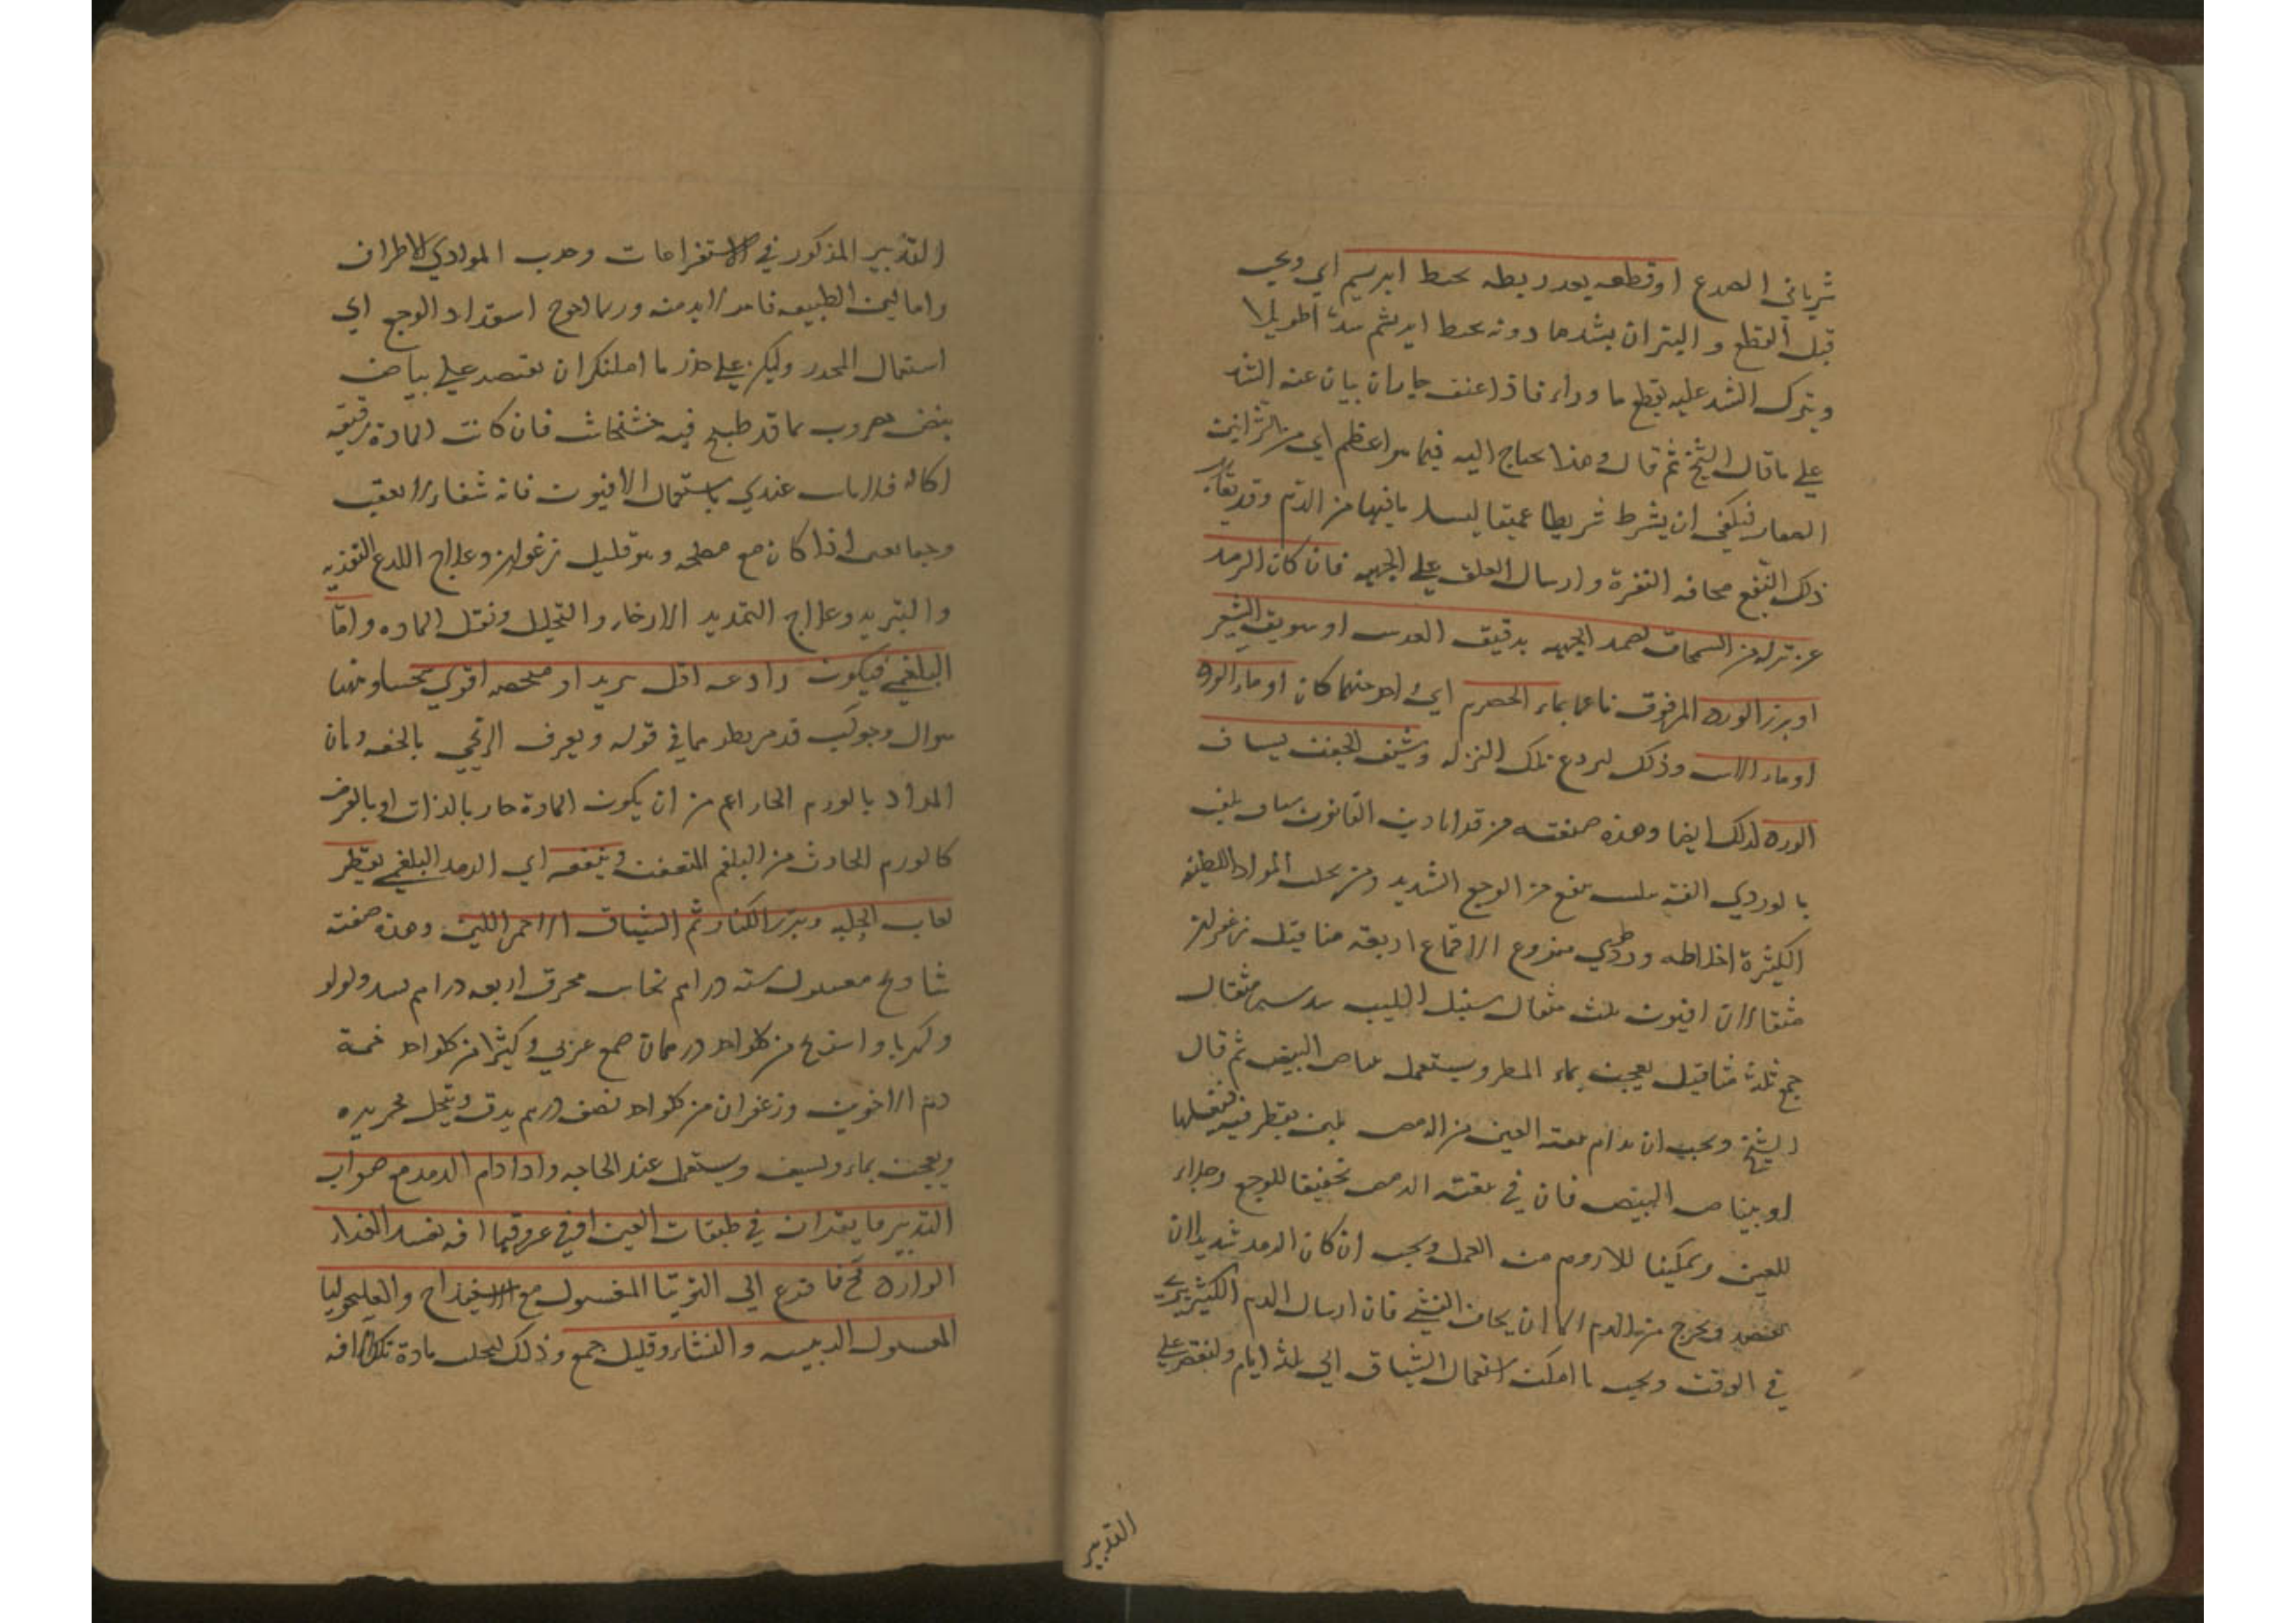 شرياني الصدغ او قطعه بعد ربطه بخيط ابريسم اي ويجب
قبل القطع و البتر ان يشدها دونه بخيط ابريشم شدا طويلا
ويترك الشد عليه يقطع ما وراء فاذا عنف جاز ان يبان عنه الشد
علي ما قال الشيخ ثم قال وهذا يحتاج اليه فيما هو اعظم اي من الشرانين
الصغار فيكفي ان يشرط شريطا عميقا ليسيل ما فيها من الدم وقد يقارب
ذلك النفع محاقه النقرة و ارسال العلق علي الجبهه فان كان الرمد
عن نزله من السمحاق يضمد الجبهه بدقيق العدس او سويق الشعير
او بزر الورد المدقوق ناعما بماء الحصرم اي واحد منهما كان او ماء الورد
او ماء الاس وذلك ليردع تلك النزله وشيف الجفن بشياف
الورد لذلك ايضا وهذه صنعته من قرابادين القانون شياف يلقب
بالوردي الفته ينفع من الوجع الشديد ومن يحلب المواد اللطيفه
الكثيرة اخلاطه ورد طري منزوع الاقماع اربعة مثاقيل زعفران
مثقالان افيون ثلث مثقال سنبل الطيب سدس مثقال
صمغ ثلثة مثاقيل يعجن بماء المطر ويستعمل ببياض البيض ثم قال
الشيخ ويجب ان يدام تنقيه العين من الرمص بلبن يقطر فيه فيغسلها
او ببياض البيض فان في تنقيه الرمص تخفيفا للوجع وجلاء
للعين وتمكينا للادويه من العمل ويجب ان كان الرمد شديدا ان
يفصد ويخرج من الدم الا ان يخاف الغشي فان ارسال الدم الكثير يبرئ
في الوقت ويجب ما امكن استعمال الشياف الي ثلثه ايام ولنقتصر علي
التدبير
التدبير المذكور في الاستفراغات وجذب المواد الي الاطراف
واما لين الطبيعه فامر لا بد منه وربما احوج اشتداد الوجع اي
استعمال المخدر وليكن علي حذر ما امكنك ان تقتصر علي بياض
بيض مضروب بما قد طبخ فيه خشخاش فان كانت المادة رقيقه
اكاله فلا باس عندي باستعمال الافيون فانه شفاء لا يعقب
وجعا يعني اذا كان مع مصلحه وهو قليل زعفران وعلاج اللذع التغذيه
والتبريد وعلاج التمديد الارخاء والتحليل ونقل الماده واما
البلغمي فيكون رادعه اقل بريدا و
سوال وجوابه قد مر نظيرهما في قوله ويعرف الريحي بالخفه وبان
المراد بالورم الحار اعم من ان يكون المادة حارة بالذات او بالعرض
كالورم الحادث من البلغم المتعفن وينفعه اي الرمد البلغمي يقطر
لعاب الحلبه وبزر الكتان ثم الشياف الاحمر اللين وهذه صفته
شادنج مغسول سته دراهم نحاس محرق اربعه دراهم بسد ولولو
وكهربا و اسرنج من كل واحد درهمان صمغ عربي وكثيرا من كل واحد خمسة
دم الاخوين وزعفران من كل واحد نصف درهم يدق وينخل بحريره
ويعجن بماء ويشيف ويستعمل عند الحاجه واذا دام الرمد مع صواب
التدبير فايقن ان في طبقات العين او في عروقها افه تفسد الغذاء
الوارد فح فافزع الي التوتيا المغسول مع الاسفيذاج والقليميا
المغسول الذهبيه والنشاء وقليل صمغ وذلك ليحلب مادة تلك الافه